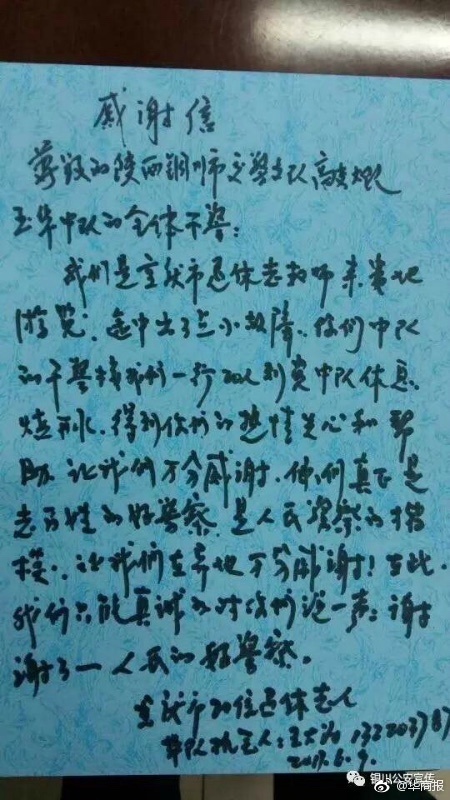 感谢信
尊敬的陕西铜川市交警支队高支队
玉华中队的全体干警:
我们是重庆市退休老教师来贵地
游览,途中出了点小故障,你们中队
的干警接我们一行20人到贵中队休息,
烧开水,得到你们的热情关心和帮
助让我们万分感谢,你们真正是
老百姓的好警察,是人民警察的楷
模,让我们在异地万分感谢!在此,
我们只能真诚的对你们说一声:谢
谢了——人民的好警察。
重庆市20位退休老人
带队执笔人:
2017.6.9.
铜川公安宣传
@华商报